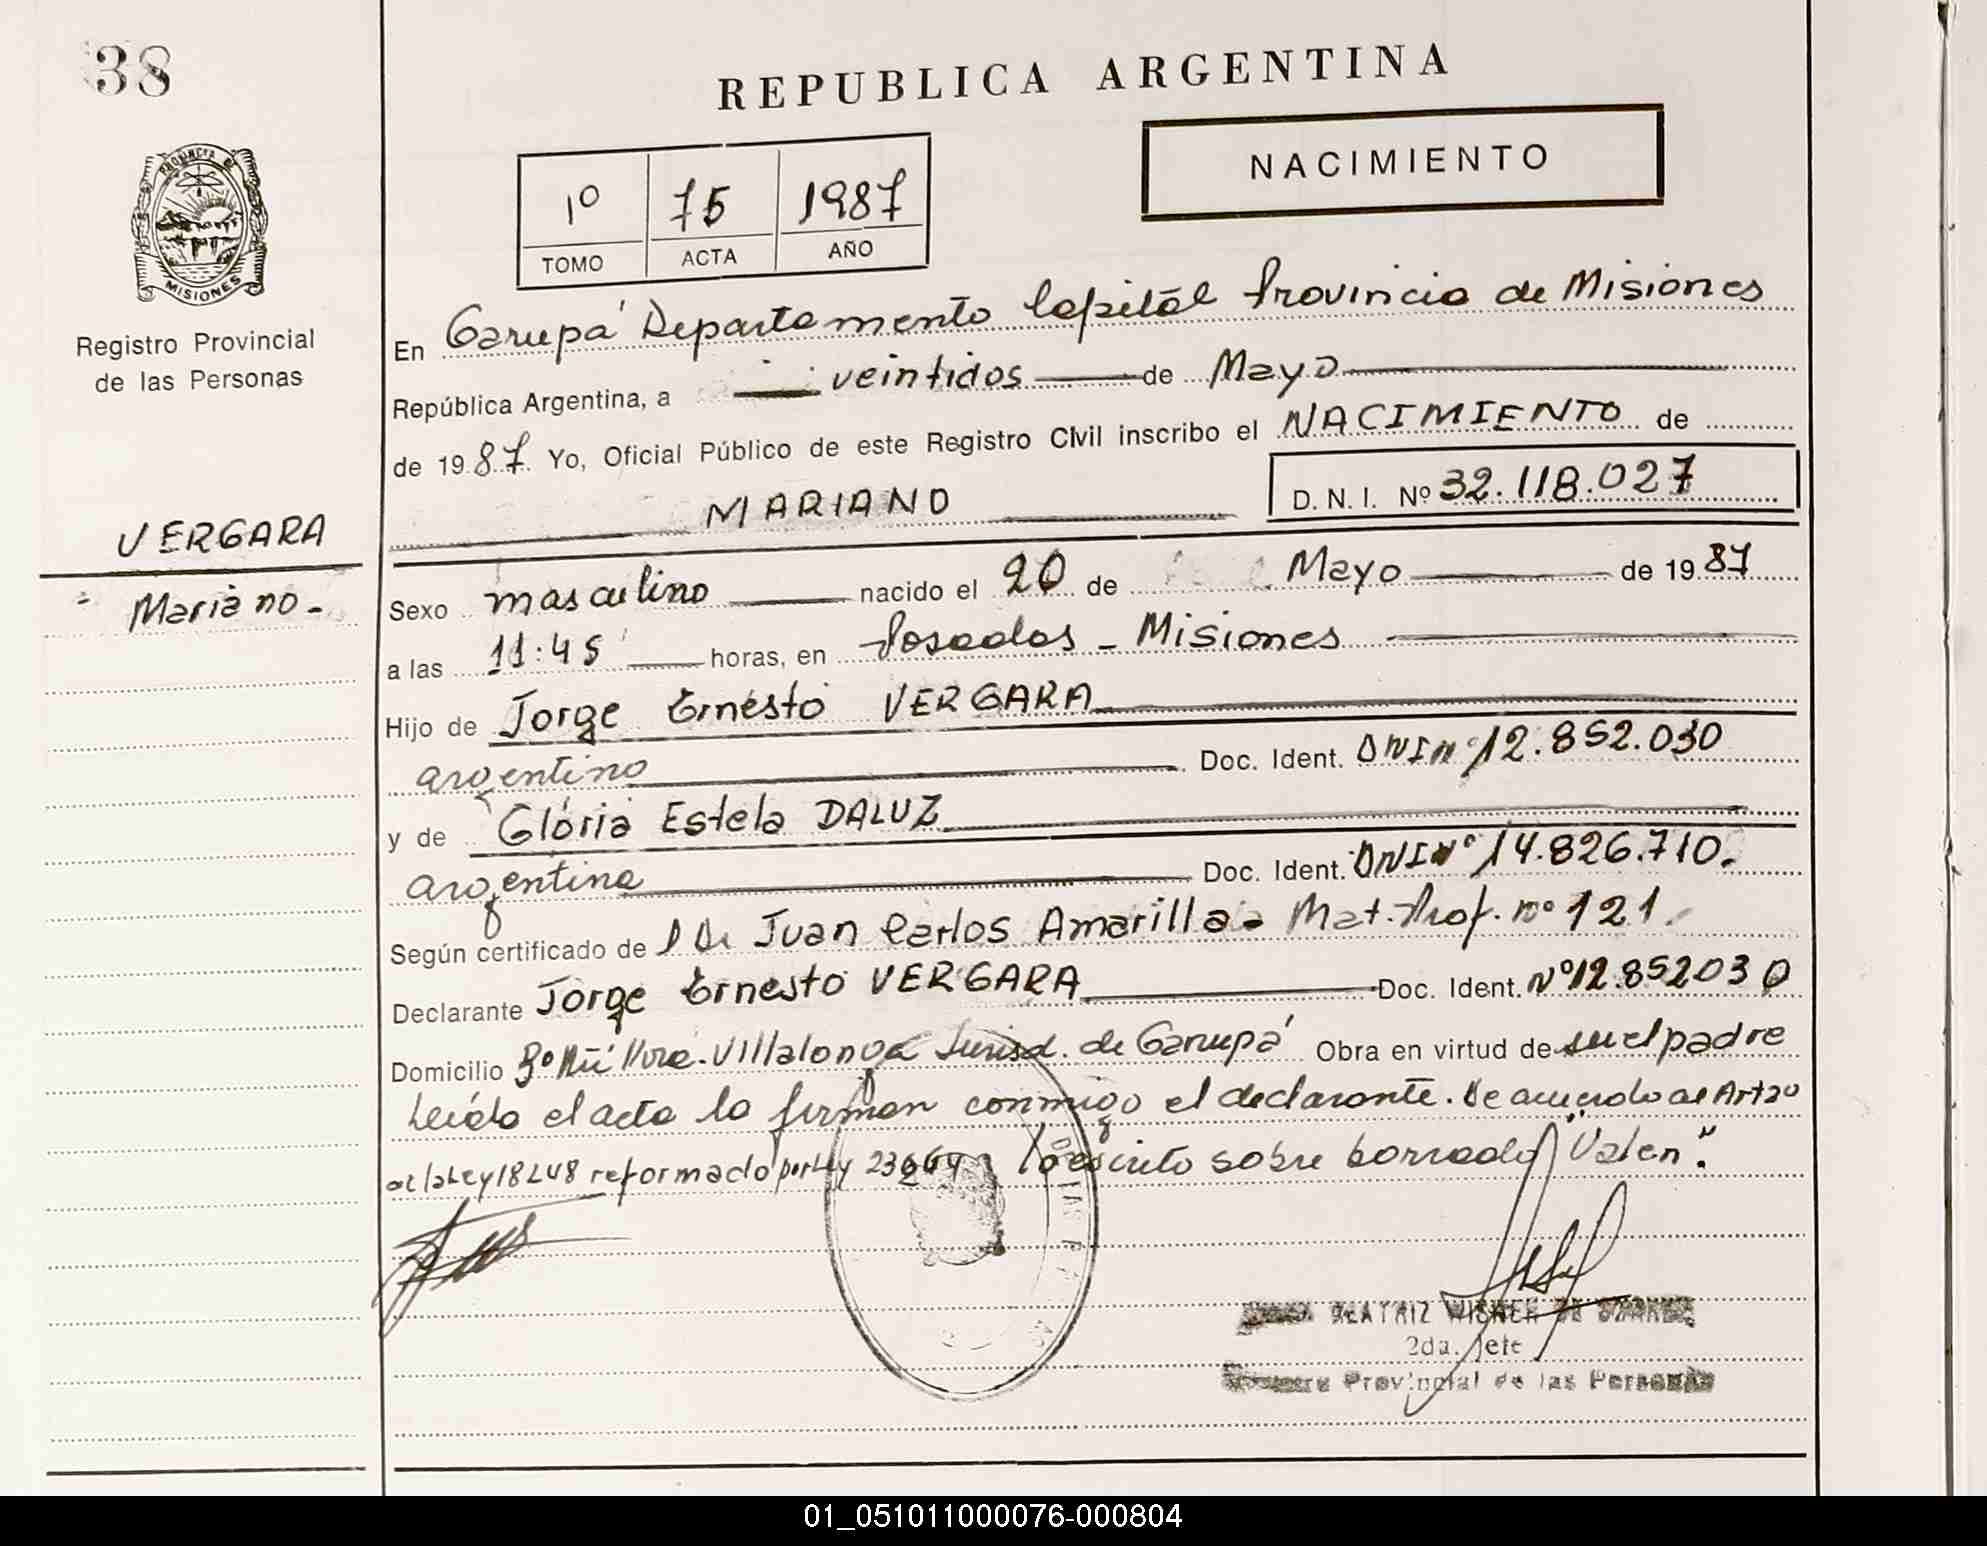 38
REPUBLICA ARGENTINA
NACIMIENTO
1º 75 1987
TOMO ACTA AÑO
PROVINCIA DE
MISIONES
Registro Provincial
de las Personas
VERGARA
Mariano.-
En Garupá Departamento Capital Provincia de Misiones
República Argentina, a veintidos de Mayo
de 1987. Yo, Oficial Público de este Registro Civil inscribo el NACIMIENTO de
MARIANO D. N. I. Nº 32.118.027
Sexo masculino nacido el 20 de Mayo de 1987
a las 11:45 horas, en Posadas - Misiones
Hijo de Jorge Ernesto VERGARA
argentino Doc. Ident. DNI nº 12.852.030
y de Gloria Estela DALUZ
argentina Doc. Ident. DNI Nº 14.826.710.
Según certificado de Juan Carlos Amarilla - Mat. Prof. nº 121.
Declarante Jorge Ernesto VERGARA Doc. Ident. Nº 12.852030
Domicilio Villalonga Jurisd. de Garupá Obra en virtud de su el padre
Leída el acta la firman conmigo el declarante. De acuerdo al Art
de la Ley 18248 reformado por Ley Lo escrito sobre borrado "Valen".
BEATRIZ WISNER DE
2da. Jefe
Provincial de las Personas
01_051011000076-000804